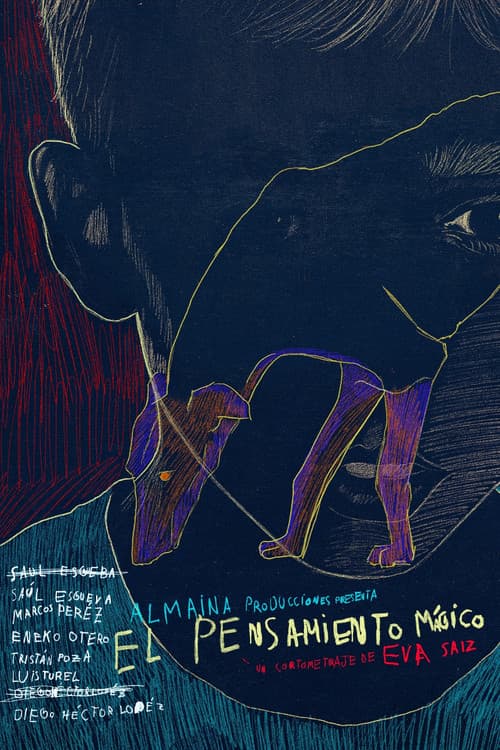 SAUL ESGEBA
SAÚL ESGUEVA
MARCOS PERÉZ
ENEKO OTERO
TRISTÁN POZA
LUIS TUREL
DIEGO HÉCTOR LOPÉZ
ALMAINA PRODUCCIONES PRESENTA
EL PENSAMIENTO MÁGICO
UN CORTOMETRAJE DE EVA SAIZ